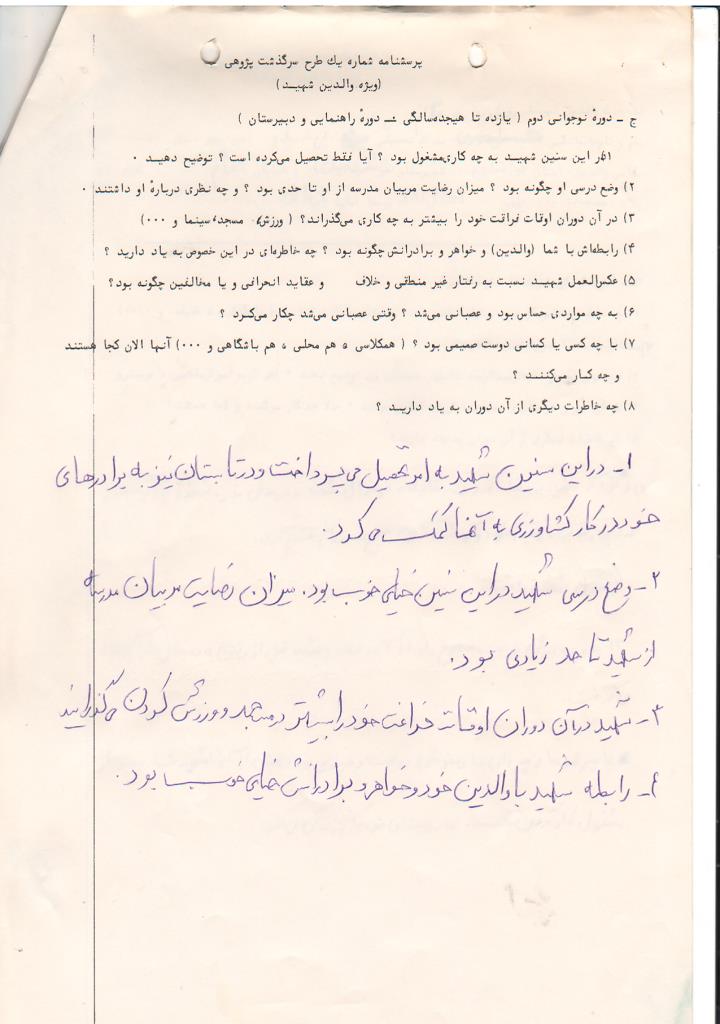 پرسشنامه شماره یك طرح سرگذشت پژوهی
(ویژه والدین شهیـد)
ج ـ دورهٔ نوجوانی دوم ( یازده تا هیجده‌سالگی ــ دورهٔ راهنمایی و دبیرستان )
۱) در این سنین شهیـد به چه کاری‌مشغول بود ؟ آیا فقط تحصیل می‌کرده است ؟ توضیح دهیـد ۰
۲) وضع درسی او چگونه بود ؟ میزان رضایت مربیان مدرسه از او تا حدی بود ؟ و چه نظری دربارهٔ او داشتند ۰
۳) در آن دوران اوقات فراقت خود را بیشتر به چه کاری می‌گذراند؟ ( ورزش، مسجد،سینما و ۰۰۰)
۴) رابطه‌اش با شما (والدین) و خواهر و برادرانش چگونه بود ؟ چه خاطره‌ای در این خصوص به یاد دارید ؟
۵) عکس‌العمل شهیـد نسبت به رفتار غیر منطقی و خلاف و عقاید انحرافی و یا مخالفین چگونه بود؟
۶) به چه مواردی حساس بود و عصبانی می‌شد ؟ وقتی عصبانی می‌شد چکار می‌کـرد ؟
۷) با چه کسی یا کسانی دوست صمیمی بود ؟ ( همکلاسی ، هم محلی ، هم باشگاهی و ۰۰۰) آنها الان کجا هستند
و چه کـار می‌کننـد ؟
۸) چه خاطرات دیگری از آن دوران به یاد داریـد ؟
۱- در این سنین شهید به امر تحصیل می پرداخت و در تابستان نیز به برادرهای
خود در کار کشاورزی به آنها کمک می کرد.
۲- وضع درسی شهید در این سنین خیلی خوب بود. میزان رضایت مربیان مدرسه
از شهید تا حد زیادی بود.
۳- شهید در آن دوران اوقات فراغت خود را بیشتر در مسجد و ورزش کردن می گذرانید
۴- رابطه شهید با والدین خود و خواهر و برادرانش خیلی خوب بود.